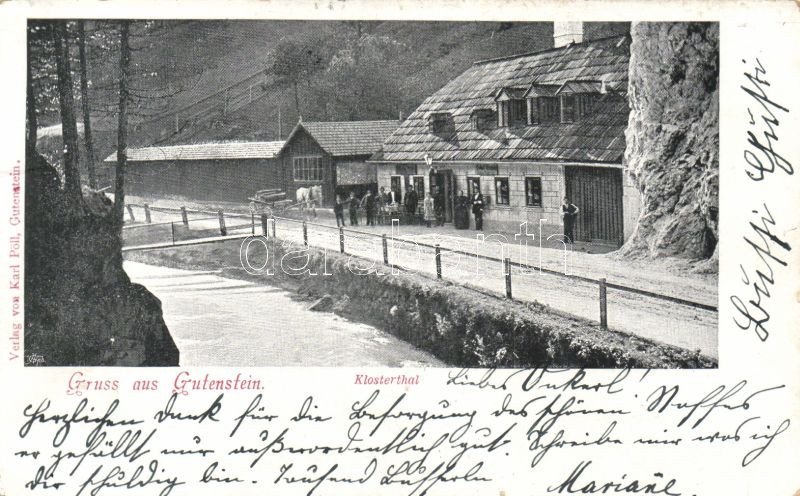 Verlag von Karl Pöll, Gutenstein.
Gruss aus Gutenstein.
Klosterthal
Liebes Onkerl!
Herzlichen Dank für die Besorgung des schönen Stoffes
er gefällt mir außerordentlich gut. Schreibe mir was ich
dir schuldig bin. Tausend Busserln
Mariane
Bussi Gusti
darabanth